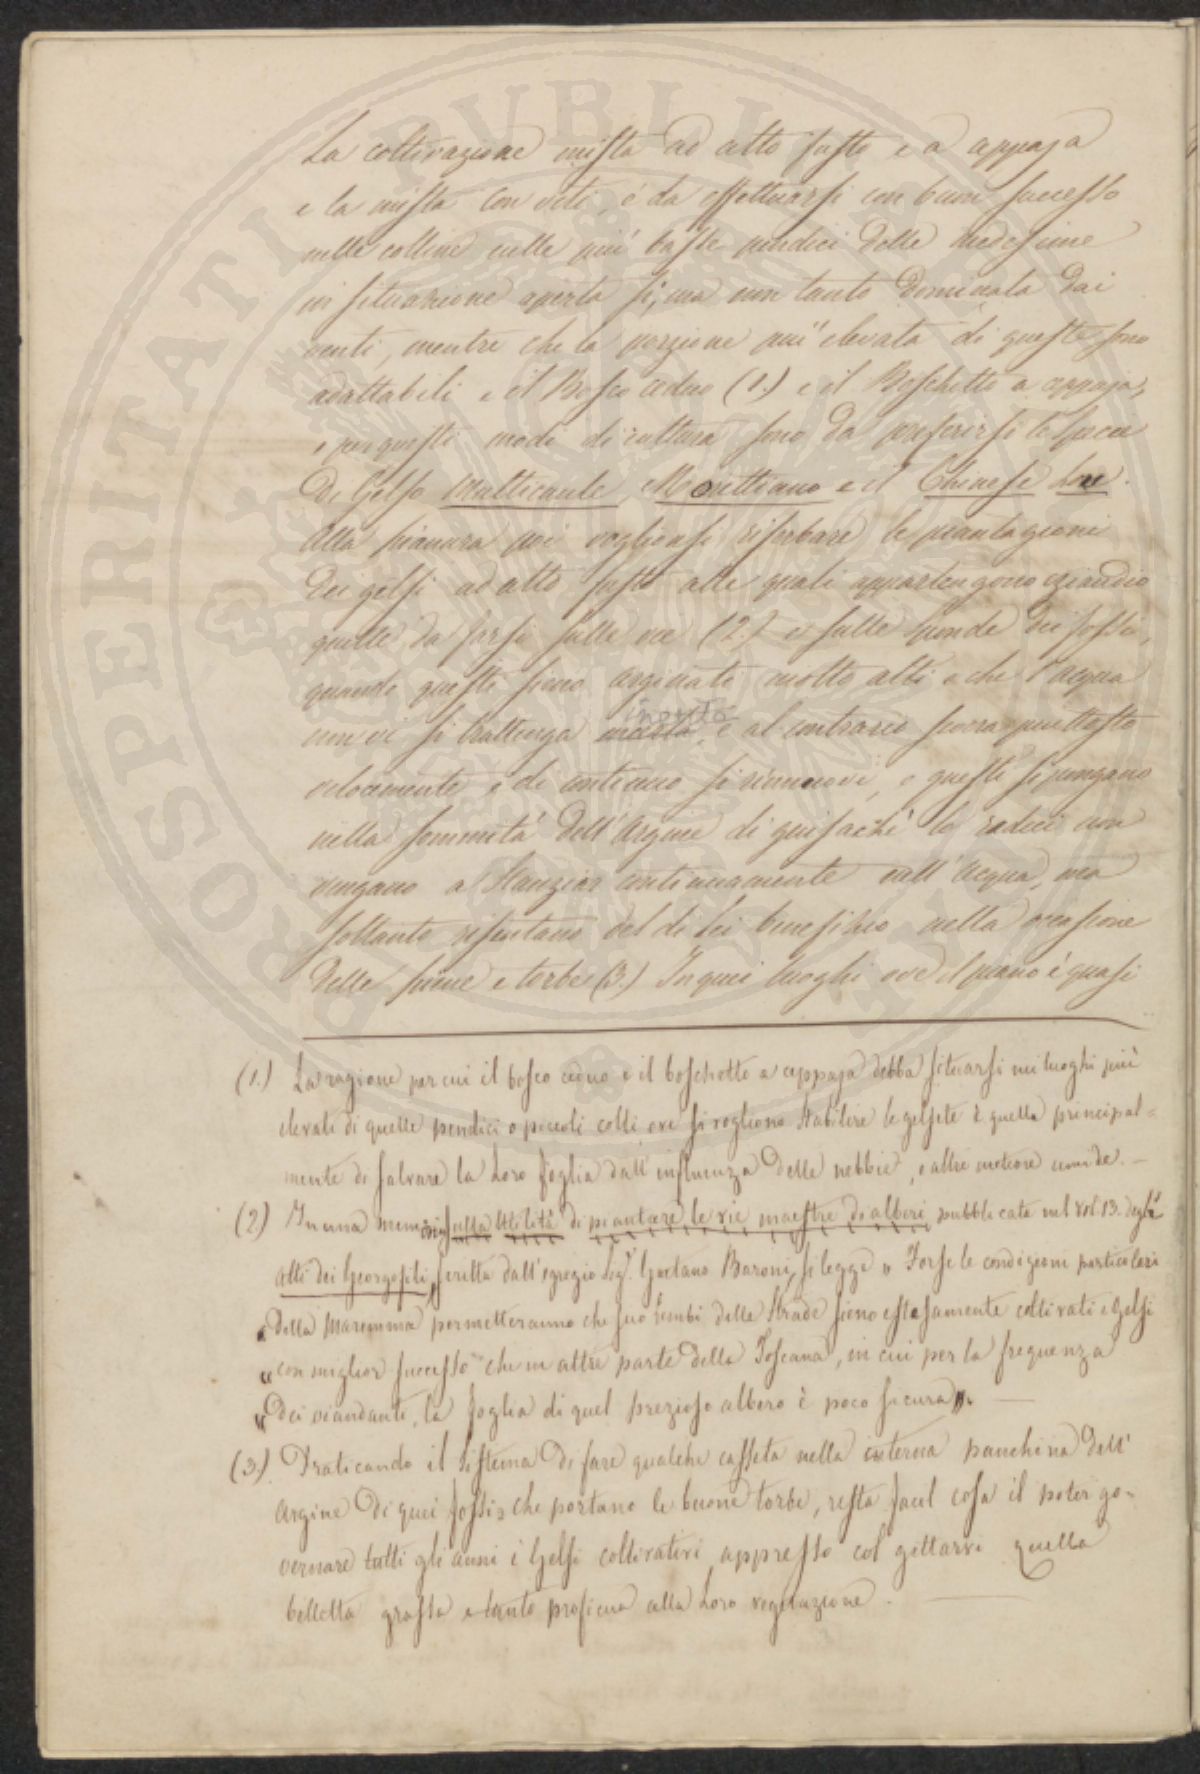 La coltivazione mista ad alto fusto e a ceppaja
e la mista con siti, è da effettuarsi con buon successo
nelle colline nelle più basse pendici delle medesime
in situazione aperta sì, ma non tanto dominata dai
venti, mentre che la porzione più elevata di queste sono
adattabili e il Bosco ceduo (1.) e il Boschetto a ceppaja,
e per questi modi di cultura sono da preferirsi le specie
di Gelso Multicaule, Morettiano e il Chinese Lou.
Alla pianura poi voglionsi riserbare le piantagioni
dei gelsi ad alto fusto alle quali appartengono eziandio
quelle da farsi sulle vie (2.) e sulle sponde dei fossi,
quando questi sieno arginati molto alti e che l'acqua
non vi si trattenga morta, e al contrario scorra piuttosto
inerte
velocemente e di continuo si rinnuovi, e questi si pongano
nella sommità dell'Argine di guisachè le radici non
vengano a stanziar continuamente nell'acqua, ma
soltanto risentano del di lei benefizio nella occasione
delle piene e torbe (3.) In quei luoghi ove il piano è quasi
(1.) La ragione per cui il bosco ceduo e il boschetto a ceppaja debba situarsi nei luoghi più
elevati di quelle pendici o piccoli colli ove si vogliono stabilire le gelsete è quella principal=
mente di salvare la loro foglia dall'influenza delle nebbie, e altre meteore umide. —
(2.) In una memoria sulla Utilità di piantare le vie maestre di alberi pubblicata nel vol. 13. degli
atti dei Georgofili, scritta dall'egregio Sigr. Gaetano Baroni, si legge „ Forse le condizioni particolari
„ della Maremma permetteranno che sui lembi delle strade sieno estesamente coltivati i Gelsi
„ con miglior successo che in altre parte della Toscana, in cui per la frequenza
„ dei viandanti, la foglia di quel prezioso albero è poco sicura „. —
(3.) Praticando il sistema di fare qualche casseta nella interna panchina dell'
argine di quei fossi, che portano le buone torbe, resta facil cosa il poter go-
vernare tutti gli anni i Gelsi coltivativi appresso col gettarvi quella
belletta grassa e tanto proficua alla loro vegetazione. —